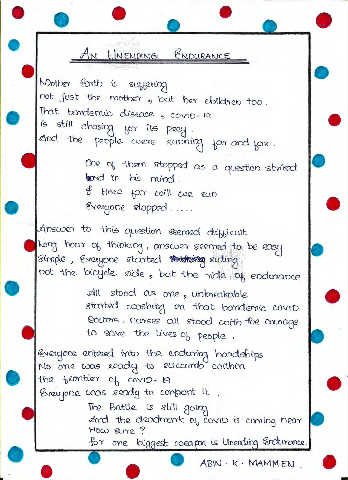 An Unending Endurance
Mother Earth is suffering
not just the mother, but her children too.
That pandemic disease, covid-19
is still chasing for its prey.
And the people were running far and far.
One of them stopped as a question stirred
in his mind.
time for will we run
Everyone stopped.....
Answer to this question seemed difficult
Long hour of thinking, answer seemed to be easy
Simple, Everyone started riding
not the bicycle ride, but the ride of endurance
Still stood as one, unbreakable
started working on that pandemic covid
Doctors, nurses all stood with the courage
to save the lives of people.
Everyone entered into the enduring hardships
No one was ready to succumb within
the frontier of covid-19
Everyone was ready to combat it.
The Battle is still going
And the deadment of covid is coming near
How sure?
For one biggest weapon is Unending Endurance.
ABIN.K.MAMMEN